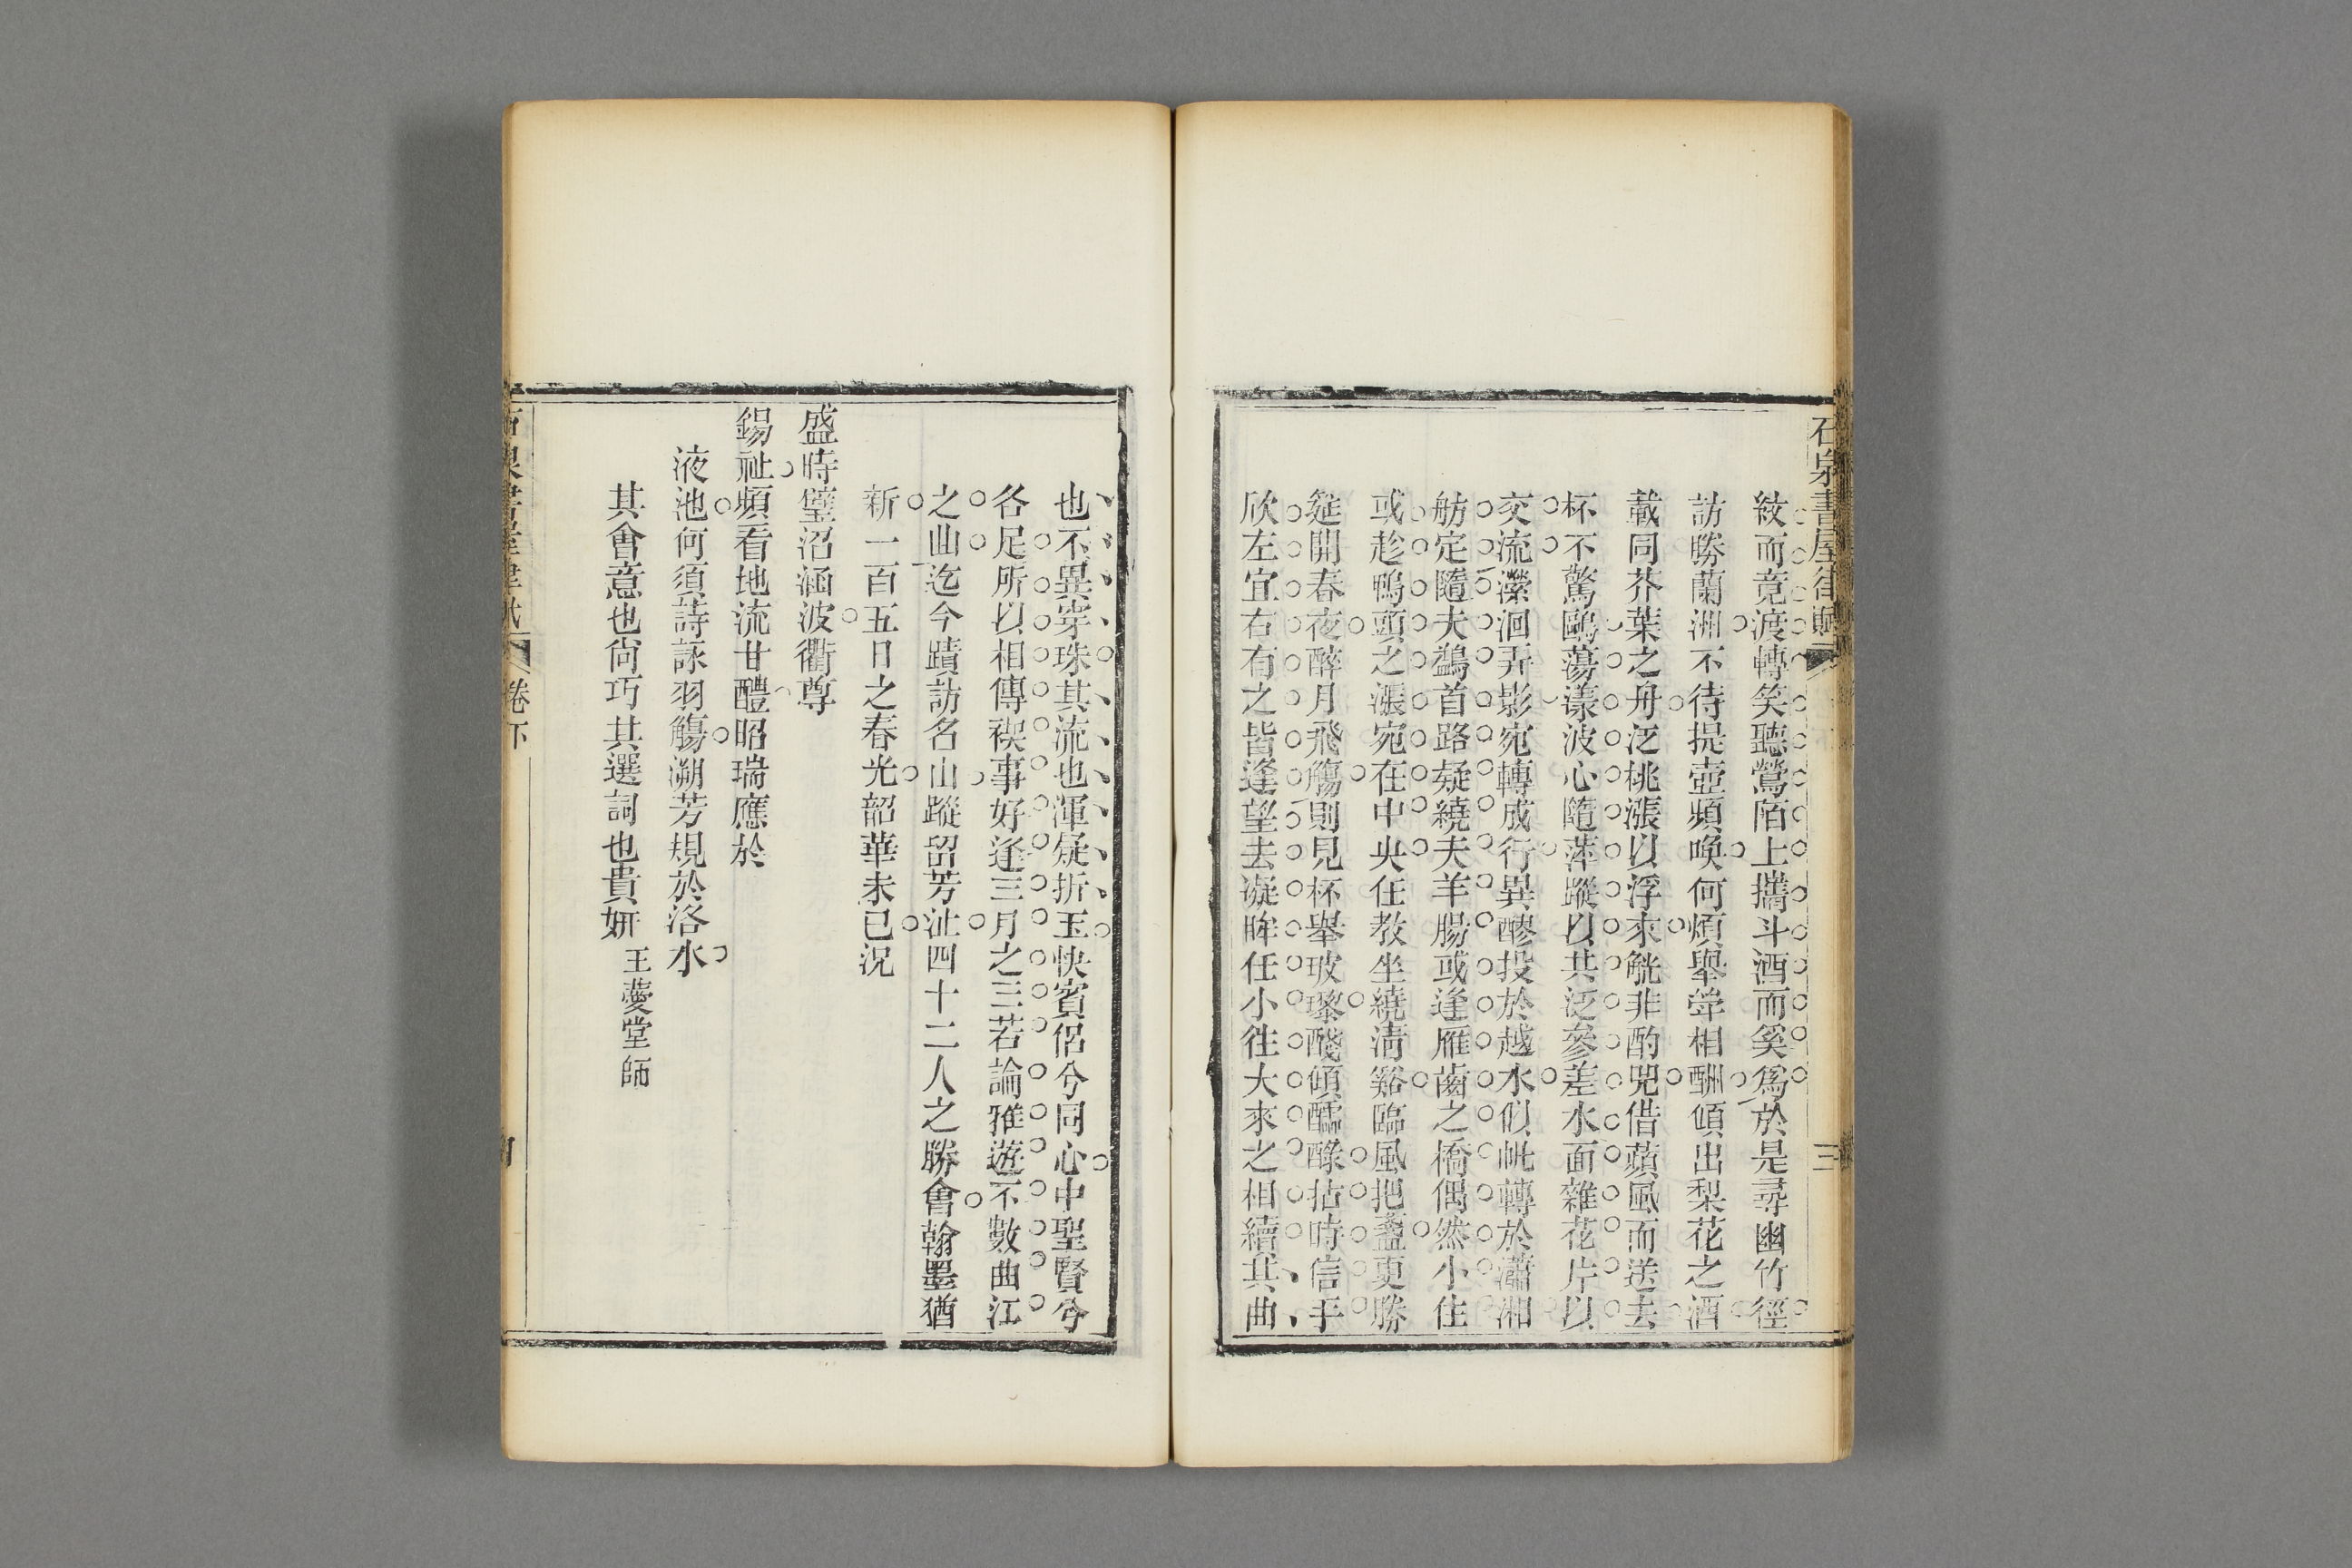 石泉書屋律賦
三
紋而竟渡轉笑聽鶯陌上攜斗酒而奚爲於是尋幽竹徑
訪勝蘭洲不待提壺頻喚何煩舉斝相酬傾出梨花之酒
載同芥葉之舟泛桃漲以浮來觥非酌兕借蘋風而送去
杯不驚鷗蕩漾波心隨萍蹤以共泛參差水面雜花片以
交流瀠洄弄影宛轉成行異醪投於越水似帆轉於瀟湘
舫定隨夫鷁首路疑繞夫羊腸或逢雁齒之橋偶然小住
或趁鴨頭之漲宛在中央任教坐繞清谿臨風把盞更勝
筵開春夜醉月飛觴則見杯舉玻瓈醆傾醽醁拈時信手
欣左宜右有之皆逢望去凝眸任小往大來之相續其曲
也不異穿珠其流也渾疑折玉快賓侶兮同心中聖賢兮
各足所以相傳禊事好逢三月之三若論雅遊不數曲江
之曲迄今蹟訪名山蹤留芳沚四十二人之勝會翰墨猶
新一百五日之春光韶華未已況
盛時璧沼涵波衢尊
錫祉頻看地流甘醴昭瑞應於
液池何須詩詠羽觴溯芳規於洛水
其會意也尙巧其選詞也貴妍
王薆堂師
石泉書屋律賦
卷下
四